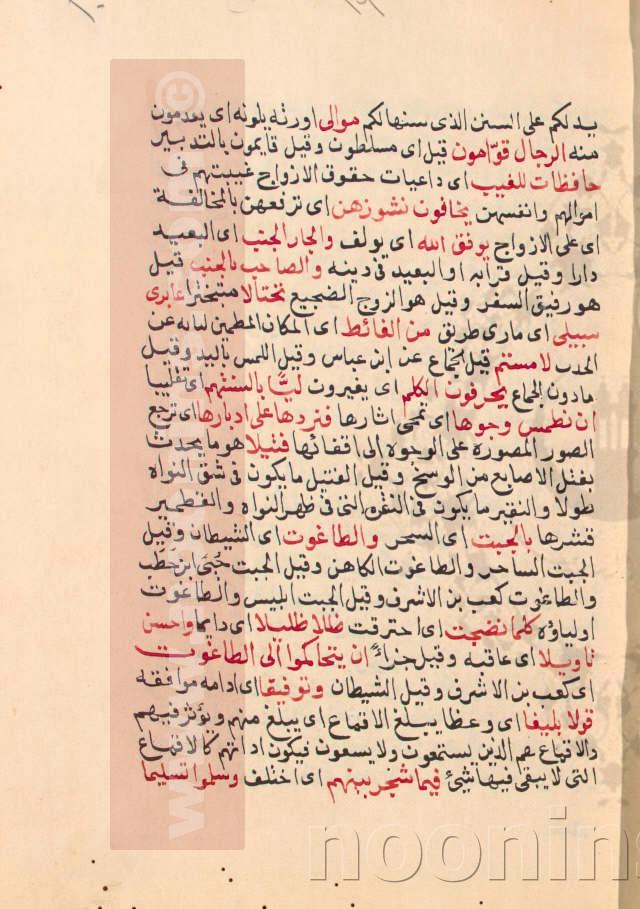 يدلكم على السنن الذى سنها لكم موالى اورثه يلونه اى يعدمون
منه الرجال قوامون قيل اى مسلطون وقيل قايمون بالتدبير
حافظات للغيب اى داعيات حقوق الازواج غيبتهم فى
اموالهم وانفسهن يخافون نشوزهن اى ترفعهن بالمخالفة
اى على الازواج يوفق الله اى يولف والجار الجنب اى البعيد
دارا وقيل قرابه او البعيد فى دينه والصاحب بالجنب قيل
هو رفيق السفر وقيل هو الزوج الضجيع مختالا متبخترا عابرى
سبيلى اى مارى طريق من الغائط اى المكان المطمئن كنابه عن
الحدب لامستم قيل الجماع عن ابن عباس وقيل اللمس باليد وقيل
مادون الجماع يحرفون الكلم اى يغيرون ليا بالسنتهم اى تقليبا
ان نطمس وجوها اى نمحى اثارها فنردها على ادبارها اى ترجع
الصور المصوره على الوجوه الى اقفائها فتيلا هو ما يحدث
بفتل الاصابع من الوسخ وقيل الفتيل ما يكون فى شق النواه
طولا والنقير ما يكون فى النقره التى فى ظهر النواه والقطمير
قشرها بالجبت اى السحر والطاغوت اى الشيطان وقيل
الجبت الساحر والطاغوت الكاهن وقيل الجبت حيى ابن حطب
والطاغوت كعب بن الاشرف وقيل الجبت ابليس والطاغوت
اولياؤه كلما نضجت اى احترقت ظلا ظليلا اى دايما واحسن
تاويلا اى عاقبه وقيل جزاء ان يتحاكموا الى الطاغوت
اى كعب بن الاشرف وقيل الشيطان وتوفيقا اى ادامه موافقه
قولا بليغا اى وعظا يبلغ الاقماع اى يبلغ منهم ويؤثر فيهم
والاقماع هم الذين يستمعون ولا يسعون فيكون اذانهم كالاقماع
التى لا يبقى فيها شئ فيما شجر بينهم اى اختلف وسلموا تسليما
noonin